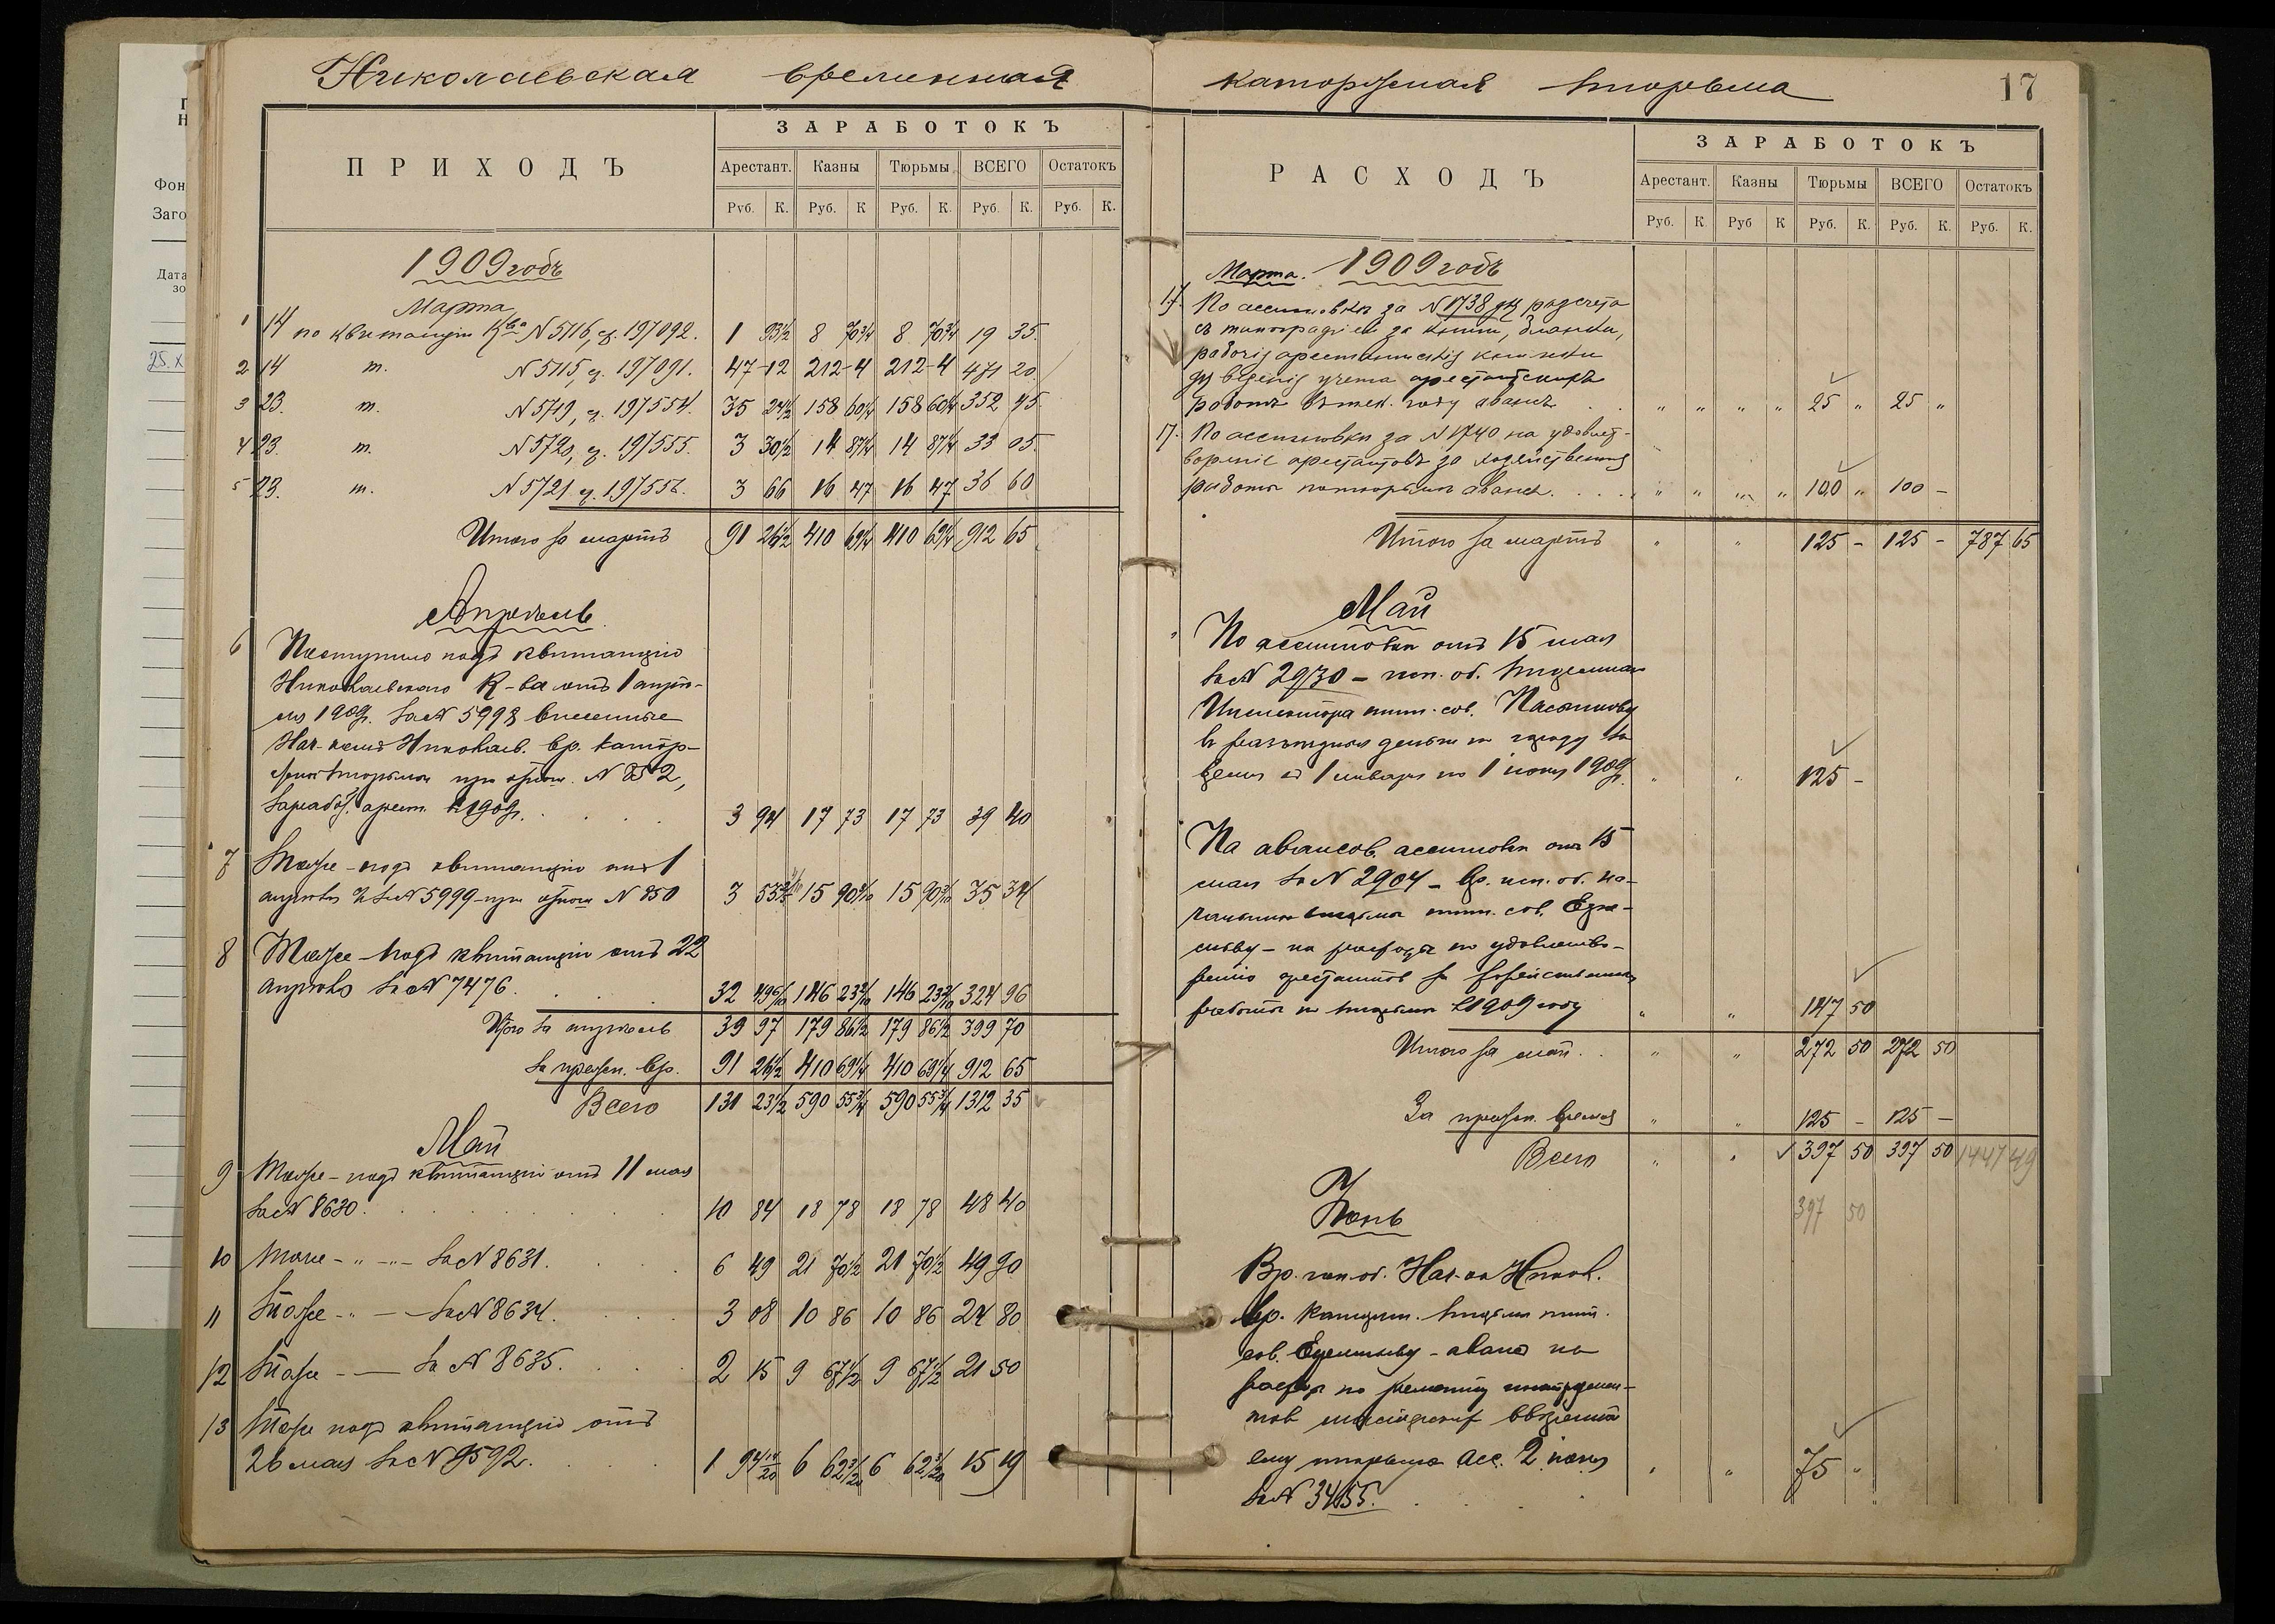 Николаевская временная
каторжная тюрьма
17
ПРИХОДЪ
ЗАРАБОТОКЪ
Арестант. Казны Тюрьмы ВСЕГО Остатокъ
Руб. К. Руб. К Руб. К. Руб. К. Руб. К.
1909 годъ
Марта
1 14 по квитанціи Ква N 5116, ч. 197092. 1 93½ 8 70¾ 8 70¾ 19 35
2 14 т. N 5115, ч. 197091. 47-12 212-4 212-4 471 20
3 23. т. N 5719, ч. 197554. 35 24½ 158 60¼ 158 60¼ 352 45
4 23. т. N 5720, ч. 197555. 3 30½ 14 87¼ 14 87¼ 33 05
5 23. т. N 5721 ч. 197556. 3 66 16 47 16 47 36 60
Итого за мартъ 91 26½ 410 69¼ 410 69¼ 912 65
Апрѣль
6 Поступило подъ квитанцію
Николаевскаго К-ва отъ 1 апрѣ-
ля 1909г. за N 5998 внесенные
Нач-комъ Николаев. вр. катор-
жной тюрьмы при отнош. N 852,
заработ. арест. въ 1909г. 3 94 17 73 17 73 39 40
7 Тоже - подъ квитанцію отъ 1
апрѣля за N 5999 - при отнош N 850 3 15 90 15 90 35 34
8 Тоже - подъ квитанцію отъ 22
апрѣля за N 7476. 32 49 146 23 146 23 324 96
Итого за апрѣль 39 97 179 86½ 179 86½ 399 70
За прежн. вр. 91 26½ 410 69¼ 410 69¼ 912 65
Всего 131 23½ 590 55¾ 590 55¾ 1312 35
Май
9 Тоже - подъ квитанцію отъ 11 мая
за N 8630. 10 84 18 78 18 78 48 40
10 Тоже - " - " - за N 8631. 6 49 21 70½ 21 70½ 49 90
11 Тоже - " - за N 8634. 3 08 10 86 10 86 24 80
12 Тоже - за N 8635. 2 15 9 67½ 9 67½ 21 50
13 Тоже подъ квитанцію отъ
26 мая за N 9592. 1 94 6 62 6 62 15 19
РАСХОДЪ
ЗАРАБОТОКЪ
Арестант. Казны Тюрьмы ВСЕГО Остатокъ
Руб. К. Руб К Руб. К. Руб. К. Руб. К.
Марта. 1909 годъ
17. По ассигновкѣ за N 1738 для разсчета
съ типографіей за книги, бланки,
рабочія арестантскія книжки
для веденія учета арестантскихъ
работъ въ тек. году авансъ " " " " 25 " 25 "
17. По ассигновкѣ за N 1740 на удовлет-
вореніе арестантовъ за хозяйственныя
работы по тюрьмѣ авансъ. " " " " 100 " 100 -
Итого за мартъ " " 125 - 125 - 787 65
Май
По ассигновкѣ отъ 15 мая
за N 2930 - исп. об. Тюремнаго
Инспектора тит. сов. Пасынкову
въ разъѣздныя деньги по городу за
время съ 1 января по 1 іюня 1909г. " " 125 -
На авансов. ассигновкѣ отъ 15
мая за N 2904 - Вр. исп. об. на-
чальника тюрьмы тит. сов.
на расходы по удовлетво-
ренію арестантовъ за хозяйственныя
работы по тюрьмѣ въ 1909 году " " 147 50
Итого за май. " " 272 50 272 50
За прежн. время " " 125 - 125 -
Всего " " 397 50 397 50 1447 49
397 50
Іюнь
Вр. исп. об. Нач-ка Никол.
вр. каторжн. тюрьмы тит.
сов. - авансъ на
расходы по ремонту инструмен-
товъ мастерскихъ ввѣренной
ему тюрьмы асс. 2 іюня
за N 3455. " " 75 "
Фон
Заго
Дата
зо
25.X